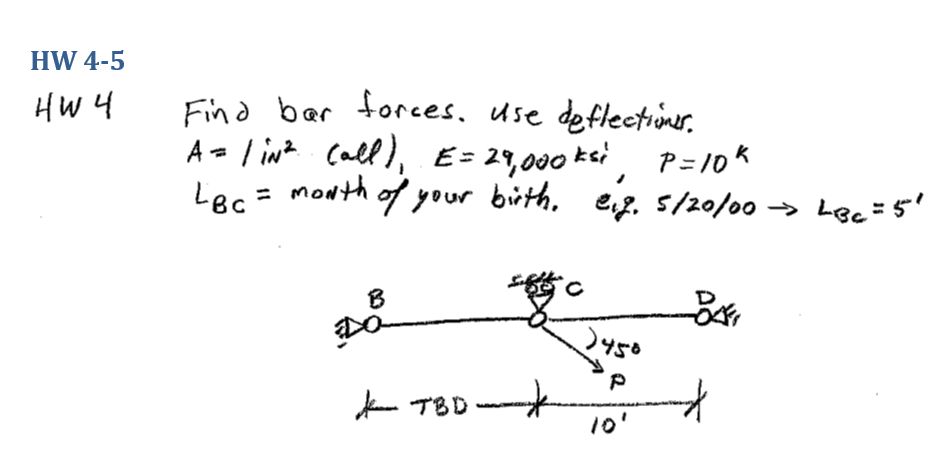 HW 4-5
HW 4 Find bar forces. Use deflections.
A = 1 in² (all), E = 29,000 ksi, P = 10 K
LBC = month of your birth. e.g. 5/20/00 → LBC = 5'
B C D
45°
P
TBD 10'